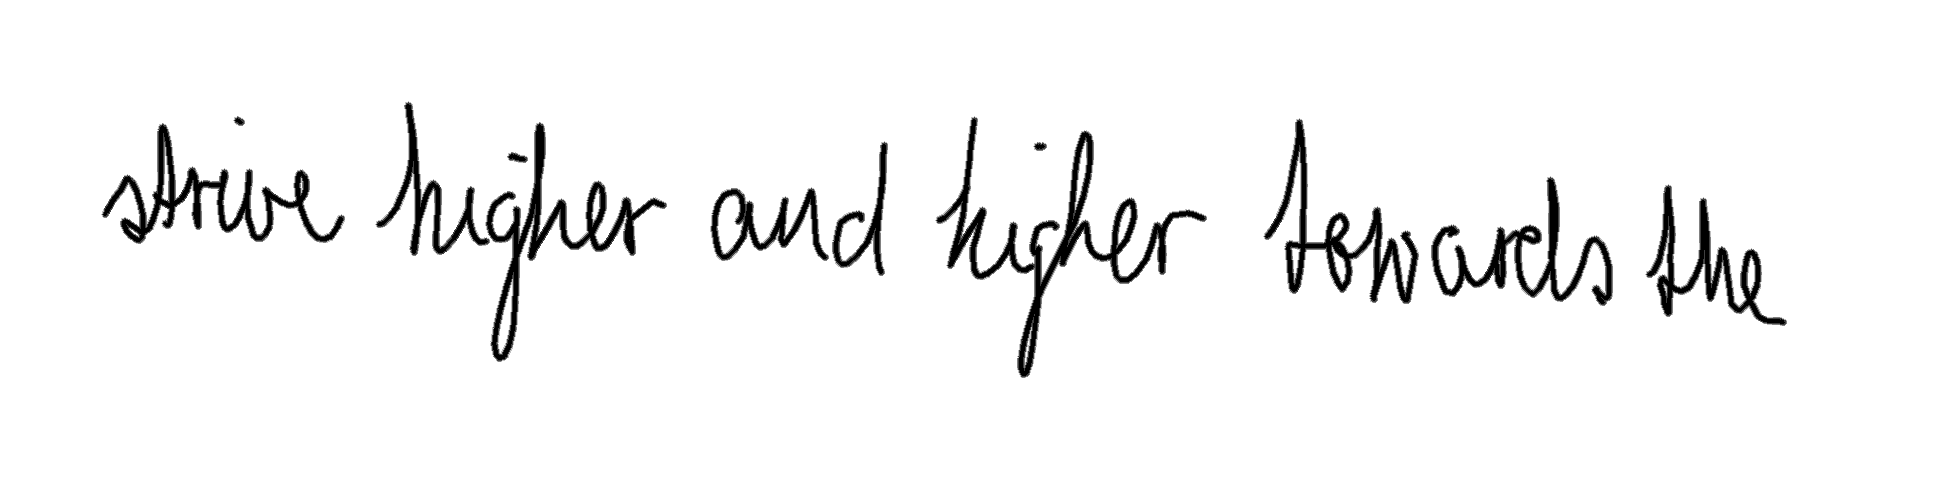 strive higher and higher towards the